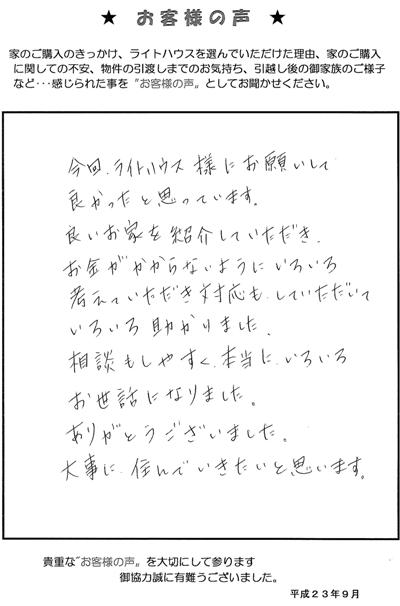 ★ お客様の声 ★
家のご購入のきっかけ、ライトハウスを選んでいただけた理由、家のご購入
に関しての不安、物件の引渡しまでのお気持ち、引越し後の御家族のご様子
など・・・感じられた事を〝お客様の声〟としてお聞かせください。
今回、ライトハウス様にお願いして
良かったと思っています。
良いお家を紹介していただき、
お金がかからないようにいろいろ
考えていただき対応も、していただいて
いろいろ助かりました。
相談もしやすく、本当に、いろいろ
お世話になりました。
ありがとうございました。
大事に、住んでいきたいと思います。
貴重な〝お客様の声〟を大切にして参ります
御協力誠に有難うございました。
平成23年9月